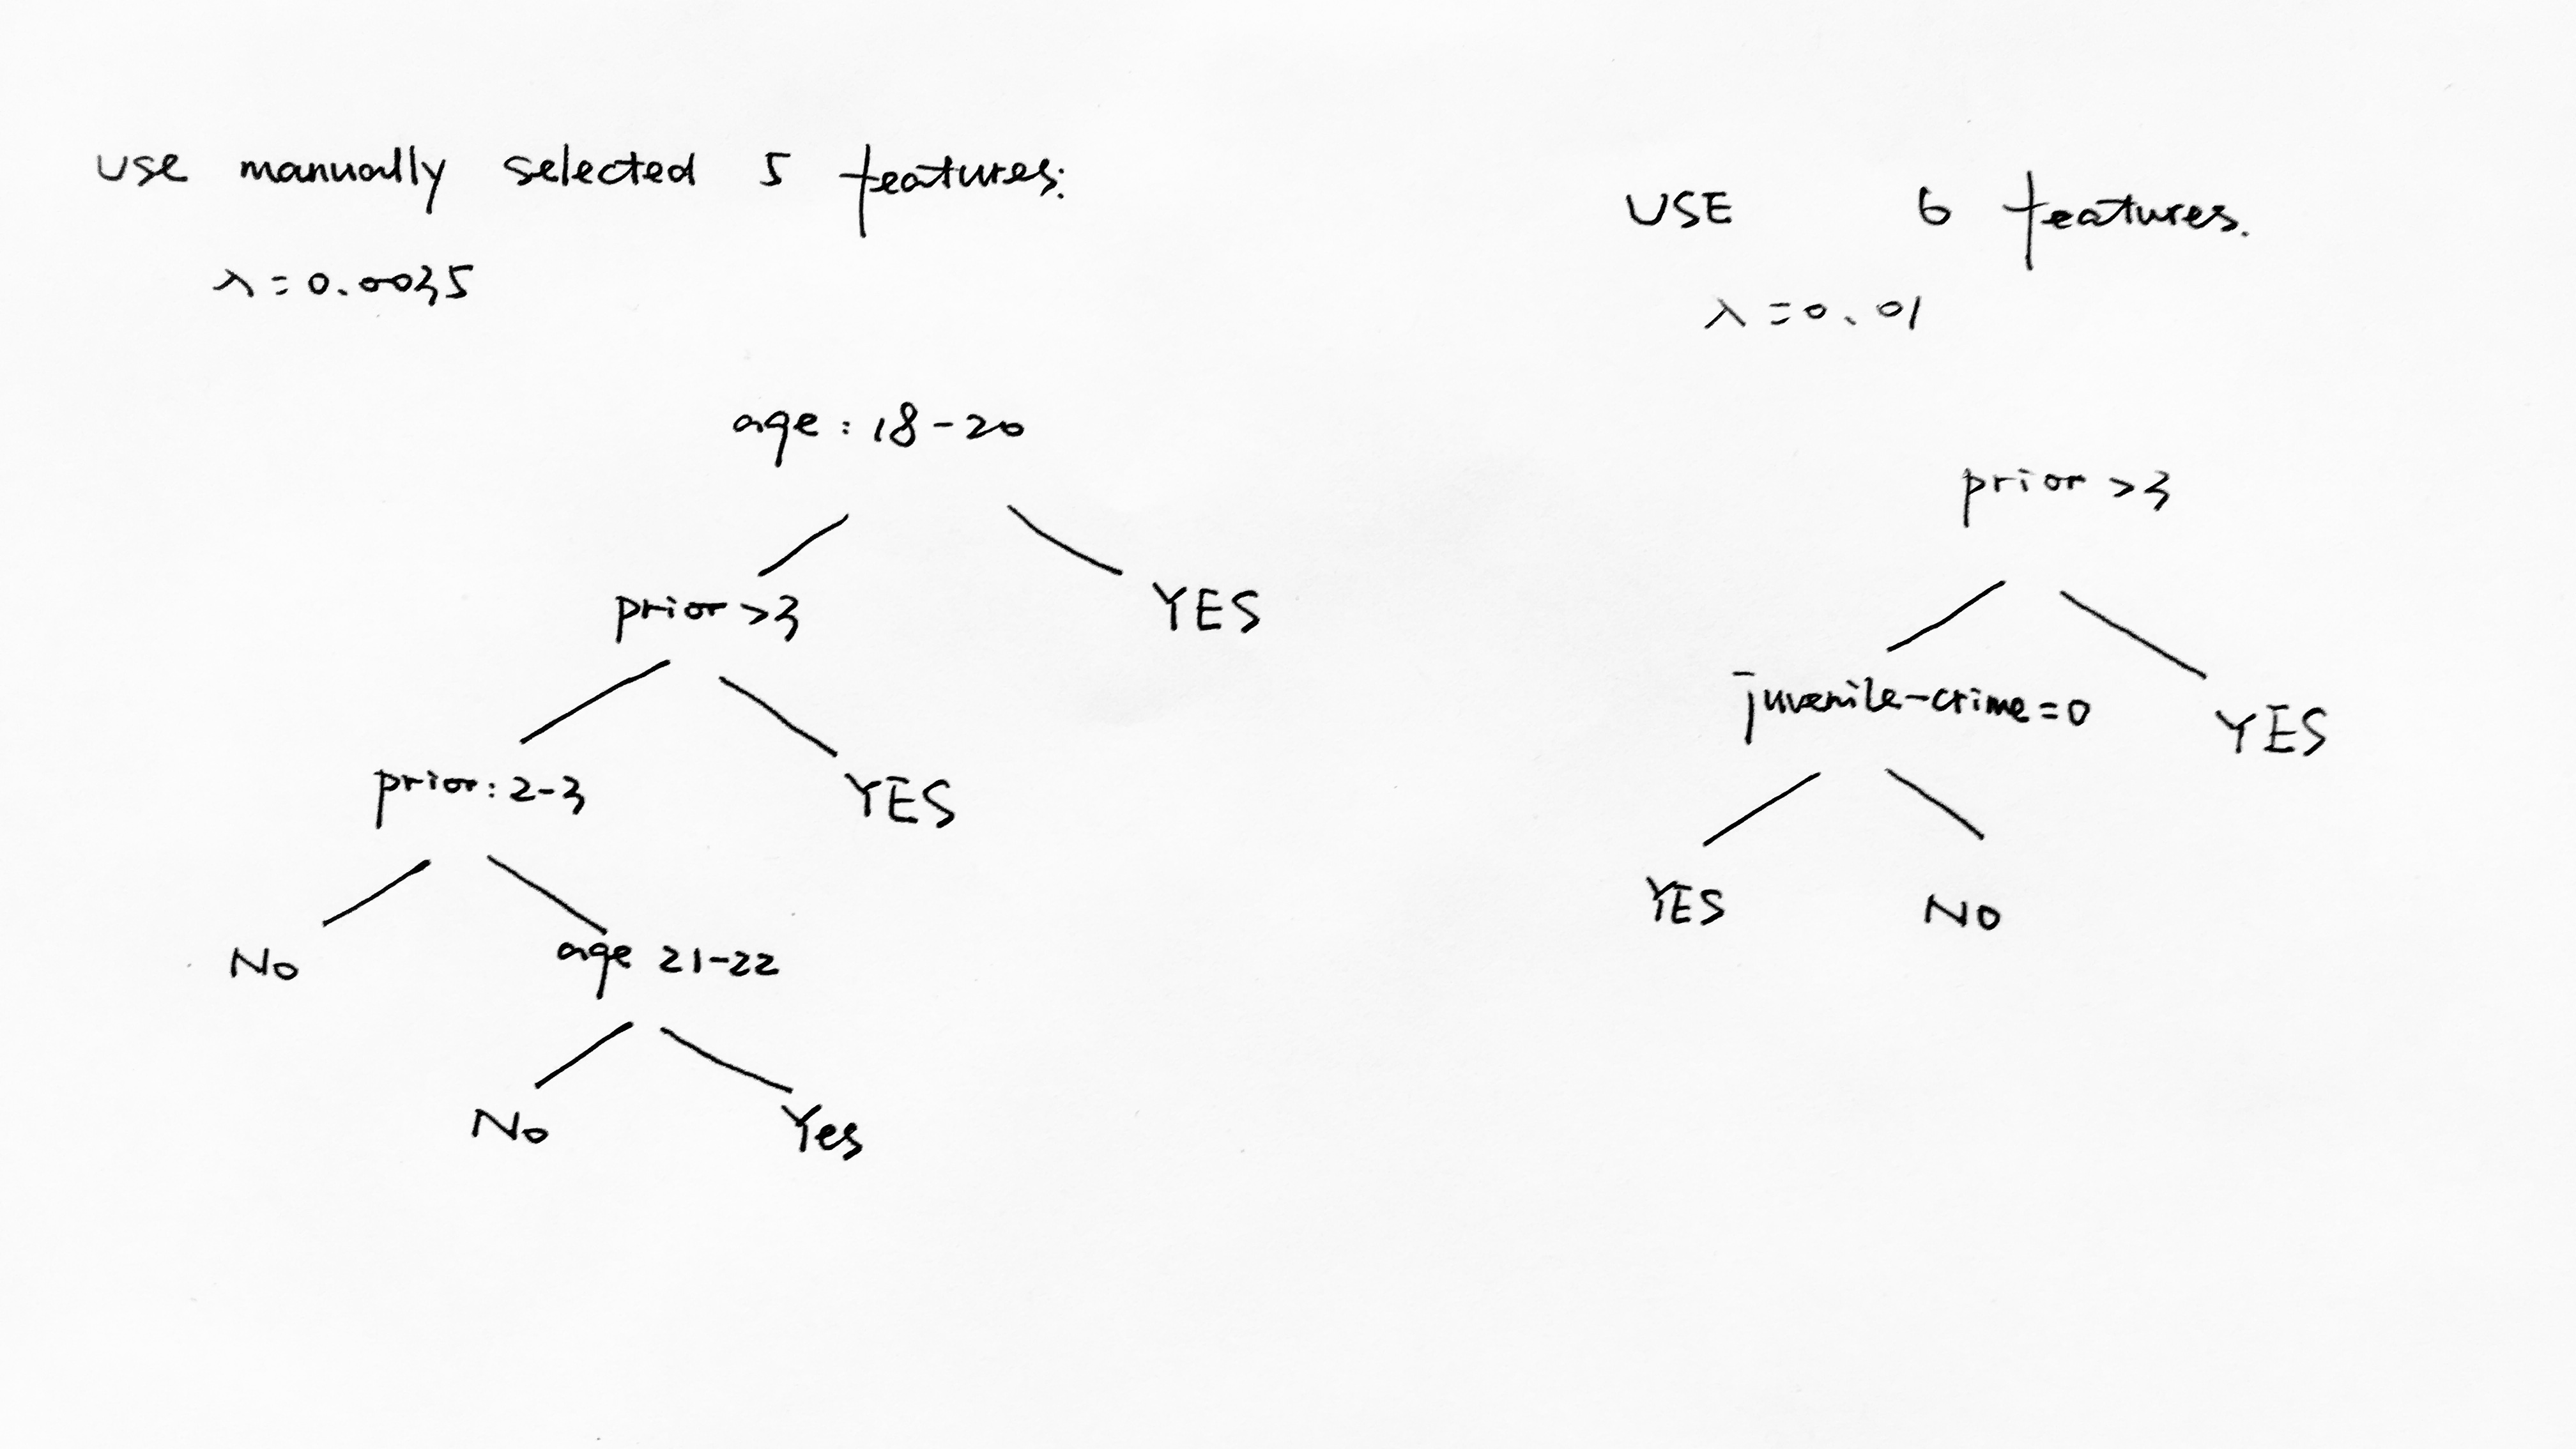 use manually selected 5 features:
λ=0.0035
age: 18-20
prior >3
YES
prior: 2-3
YES
No
age 21-22
No
Yes
USE 6 features.
λ=0.01
prior >3
juvenile-crime=0
YES
YES
NO